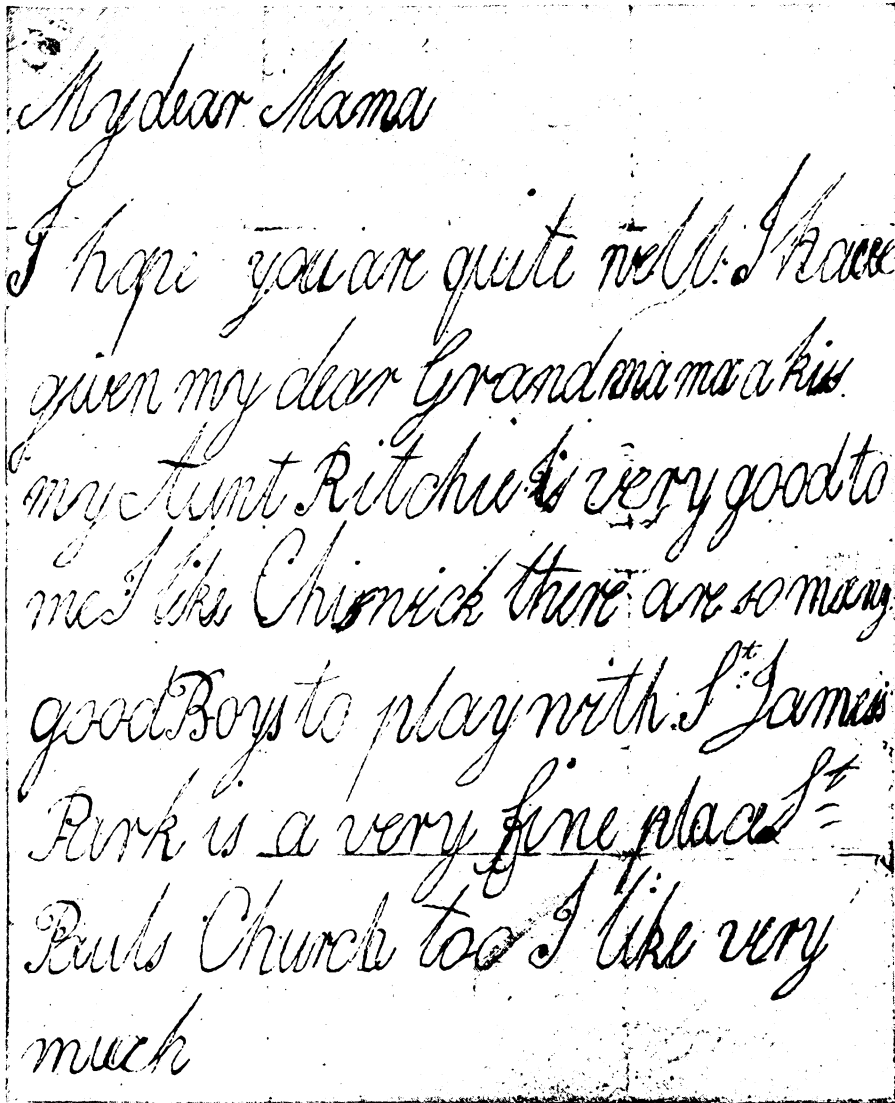 My dear Mama
I hope you are quite well. I have
given my dear Grandmama a kiss.
my Aunt Ritchie is very good to
me I like Chiswick there are so many
good Boys to play with. St James's
Park is a very fine place St
Pauls Church too I like very
much